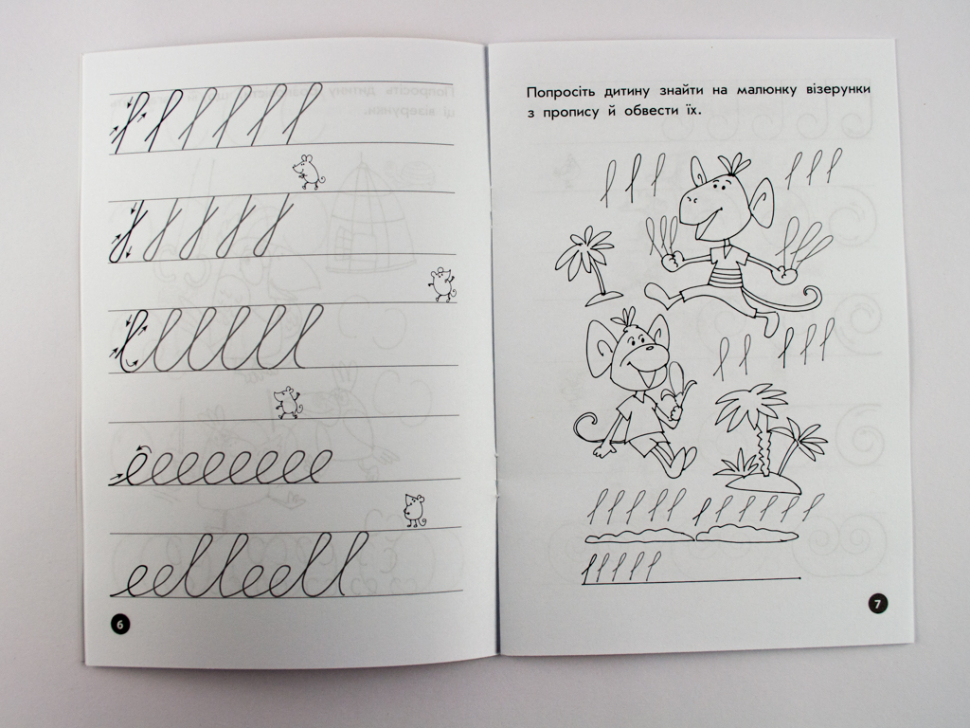 6
Попросіть дитину знайти на малюнку візерунки
з пропису й обвести їх.
7